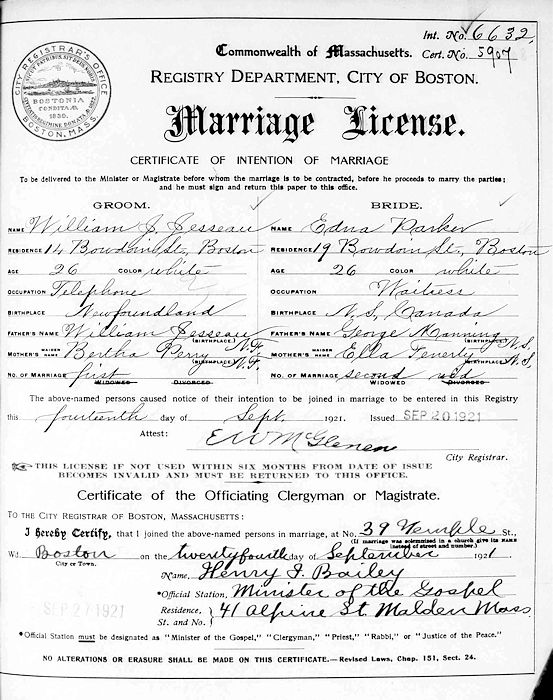 Int. No. 6632,
Commonwealth of Massachusetts. Cert. No. 5907
REGISTRY DEPARTMENT, CITY OF BOSTON.
Marriage License.
CITY REGISTRAR'S OFFICE
BOSTONIA
CONDITA A.D.
1630.
BOSTON, MASS.
CERTIFICATE OF INTENTION OF MARRIAGE
To be delivered to the Minister or Magistrate before whom the marriage is to be contracted, before he proceeds to marry the parties;
and he must sign and return this paper to this office.
GROOM. BRIDE.
NAME William J. Jesseau NAME Edna Parker
RESIDENCE 14 Bowdoin St., Boston RESIDENCE 19 Bowdoin St., Boston
AGE 26 COLOR white AGE 26 COLOR white
OCCUPATION Telephone OCCUPATION Waitress
BIRTHPLACE Newfoundland BIRTHPLACE N.S. Canada
FATHER'S NAME William Jesseau (BIRTHPLACE) N.F. FATHER'S NAME George Manning (BIRTHPLACE) N.S.
MOTHER'S MAIDEN NAME Bertha Perry (BIRTHPLACE) N.F. MOTHER'S MAIDEN NAME Ella Fenerty (BIRTHPLACE) N.S.
NO. OF MARRIAGE first WIDOWED DIVORCED NO. OF MARRIAGE second wid WIDOWED DIVORCED
The above-named persons caused notice of their intention to be joined in marriage to be entered in this Registry
this fourteenth day of Sept. 1921. Issued SEP 20 1921
Attest: E W McGlenen
City Registrar.
THIS LICENSE IF NOT USED WITHIN SIX MONTHS FROM DATE OF ISSUE
BECOMES INVALID AND MUST BE RETURNED TO THIS OFFICE.
Certificate of the Officiating Clergyman or Magistrate.
TO THE CITY REGISTRAR OF BOSTON, MASSACHUSETTS:
I hereby Certify, that I joined the above-named persons in marriage, at No. 39 Temple St.,
(If marriage was solemnized in a church give its NAME
instead of street and number.)
Wd. Boston on the twenty fourth day of September 1921
City or Town.
Name, Henry I. Bailey
*Official Station, Minister of the Gospel
SEP 27 1921
Residence, St. and No. 41 Alpine St. Malden Mass
*Official Station must be designated as "Minister of the Gospel," "Clergyman," "Priest," "Rabbi," or "Justice of the Peace."
NO ALTERATIONS OR ERASURE SHALL BE MADE ON THIS CERTIFICATE.—Revised Laws, Chap. 151, Sect. 24.